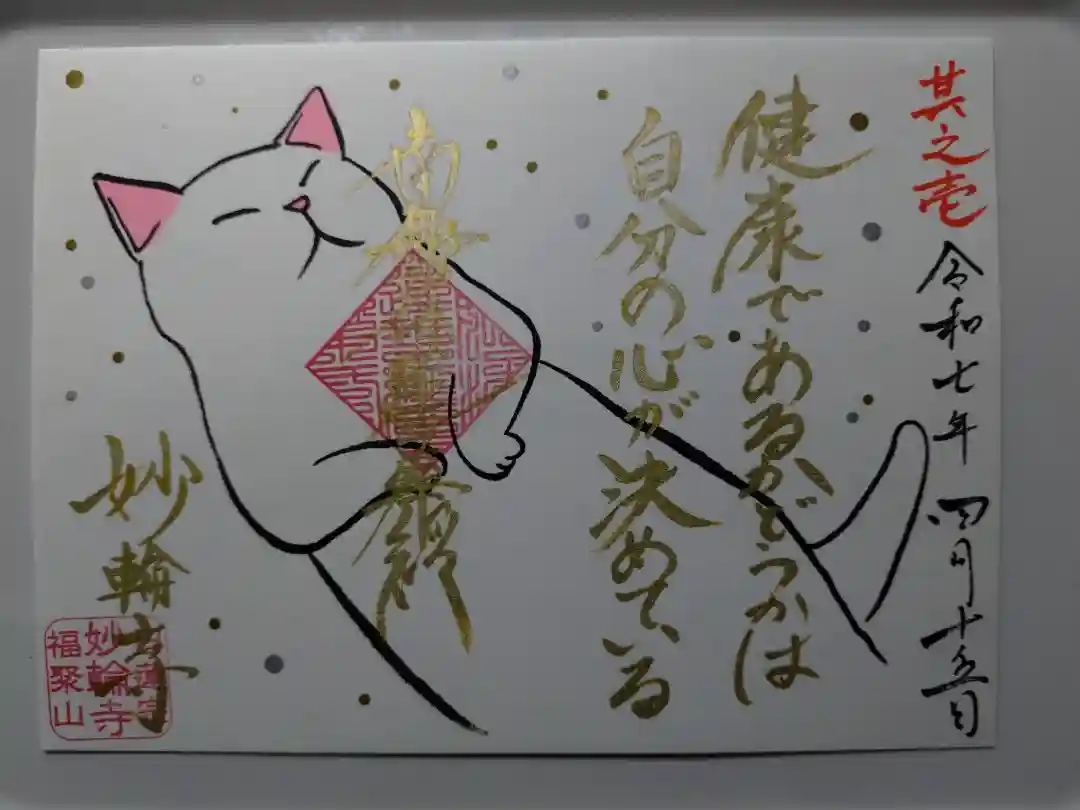 其之壱
令和七年 四月十五日
健康であるかどうかは
自分の心が決めている
南無
妙輪寺
妙輪寺
福聚山